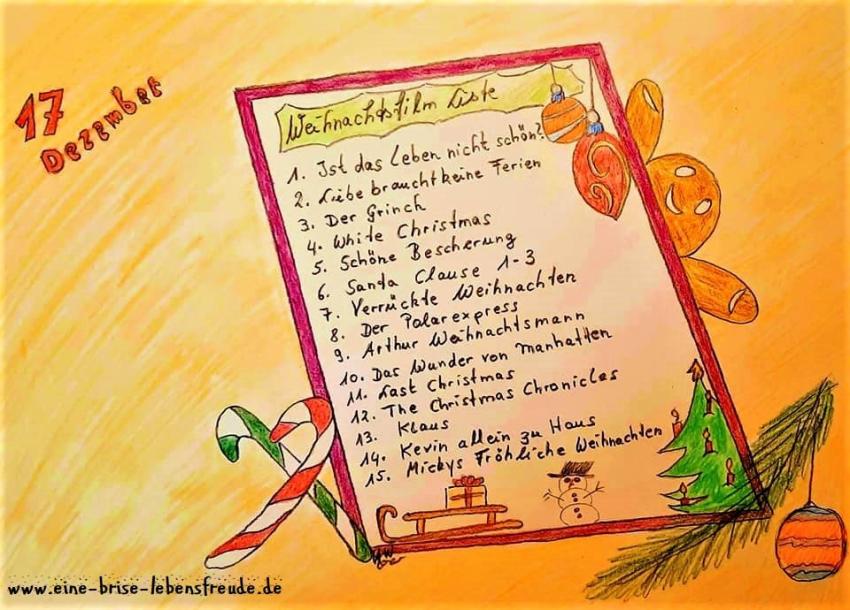 17
Dezember
Weihnachtsfilm Liste
1. Ist das Leben nicht schön?
2. Liebe braucht keine Ferien
3. Der Grinch
4. White Christmas
5. Schöne Bescherung
6. Santa Clause 1-3
7. Verrückte Weihnachten
8. Der Polarexpress
9. Arthur Weihnachtsmann
10. Das Wunder von Manhatten
11. Last Christmas
12. The Christmas Chronicles
13. Klaus
14. Kevin allein zu Haus
15. Mickys Fröhliche Weihnachten
www.eine-brise-lebensfreude.de